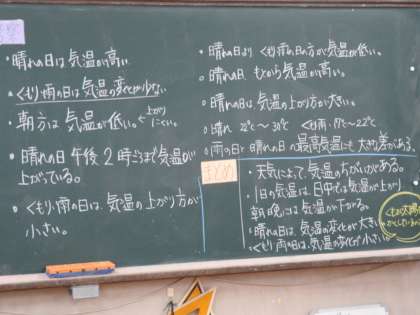 ・晴れの日は気温が高い。
・くもり・雨の日は気温の変化が少ない
・朝方は気温が低い。←上がりにくい。
・晴れの日 午後2時ごろまで気温が
上がっている。
・くもり・雨の日は、気温の上がり方が
小さい。
・晴れの日より くもり・雨の日の方が気温が低い。
・晴れの日 もとから気温が高い。
・晴れの日は、気温の上がり方が大きい。
・晴れ 22℃〜30℃ くもり・雨 17℃〜22℃
・雨の日と晴れの日の最高気温にも大きな差がある。
まとめ
・天気によって、気温のちがいがでる。
・1日の気温は、日中は気温が上がり
朝、晩には気温が下がる。
・晴れの日は、気温の変化が大きい
・くもり・雨の日は、気温の変化が小さい。
くもが太陽を
かくしているから